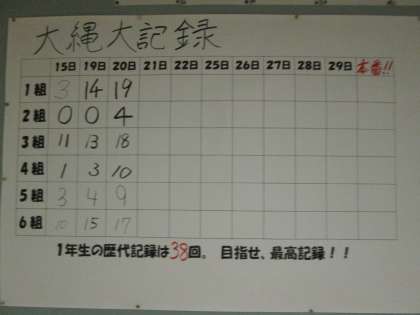 大縄大記録
15日 19日 20日 21日 22日 25日 26日 27日 28日 29日 本番!!
1組 3 14 19
2組 0 0 4
3組 11 13 18
4組 1 3 10
5組 3 4 9
6組 10 15 17
1年生の歴代記録は38回。 目指せ、最高記録!!